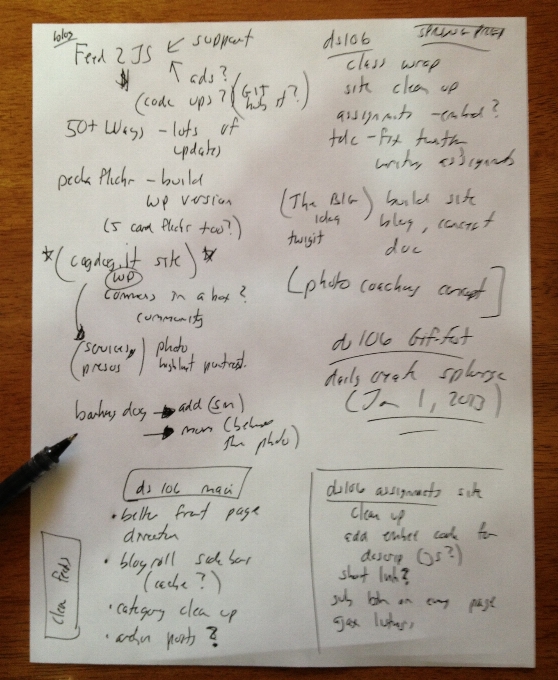 blog
Feed 2 JS support
ads?
(code ups?) (GIT hub it?)
50+ Ways - lots of
updates
pecha flickr - build
WP version
(5 card flickr too?)
(cogdog.it site)
WP
commons in a box?
community
(services, presos) photo
highlight
barking dog add (sm)
more (behind
the photo)
ds106 SPRING PREP
class wrap
site clean up
assignments - embed?
tdc - fix twitter
writing assignments
(The BIG idea) build site
twigit blog, concept
doc
[photo coaching concept]
ds106 GIFfest
daily create splurge
(Jan 1, 2013)
ds106 main
• better front page
direction
• blogroll side bar
(cache?)
• category clean up
• archive posts?
clean feeds
ds106 assignments site
clean up
add embed code for
descrip (JS?)
short link?
sub btn on every page
ajax